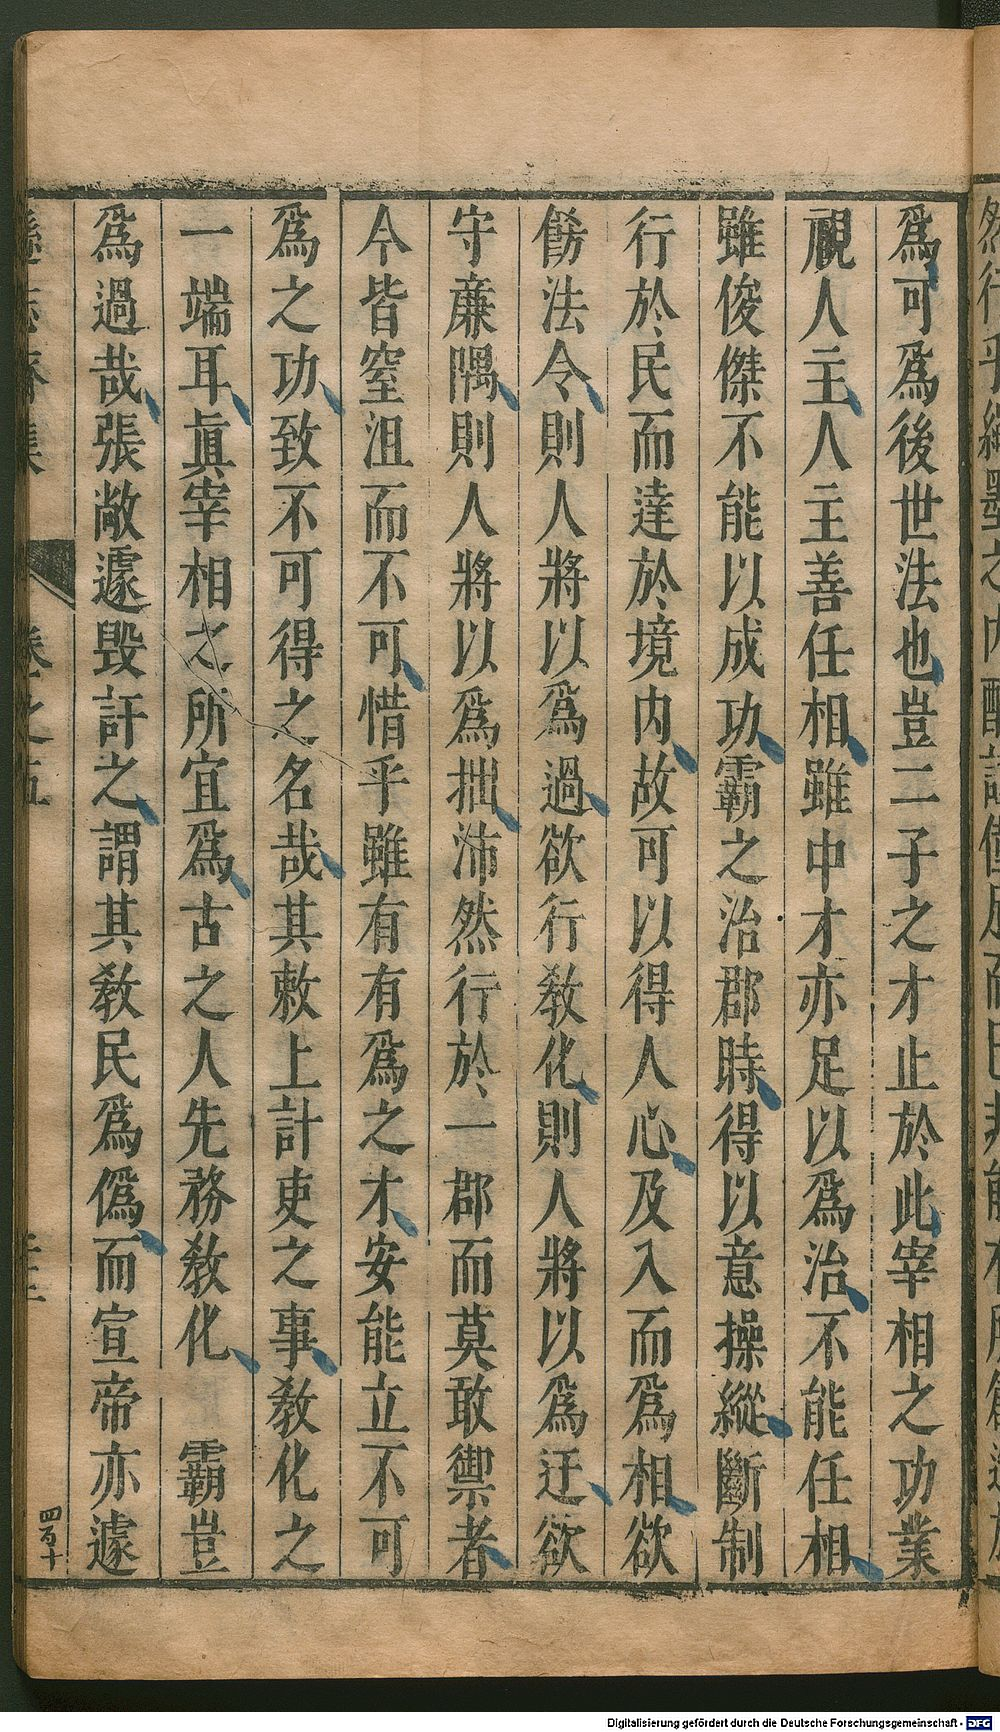 爲可爲後世法也豈二子之才止於此宰相之功業
視人主人主善任相雖中才亦足以爲治不能任相
雖俊傑不能以成功霸之治郡時得以意操縱斷制
行於民而達於境内故可以得人心及入而爲相欲
飭法令則人將以爲過欲行敎化則人將以爲迂欲
守廉隅則人將以爲拙沛然行於一郡而莫敢禦者
今皆窒沮而不可惜乎雖有有爲之才安能立不可
爲之功致不可得之名哉其敕上計吏之事敎化之
一端耳眞宰相之所宜爲古之人先務敎化 霸豈
爲過哉張敞遽毀訐之謂其敎民爲僞而宣帝亦遽
遜志齋集 卷之五
四百十
Digitalisierung gefördert durch die Deutsche Forschungsgemeinschaft - DFG